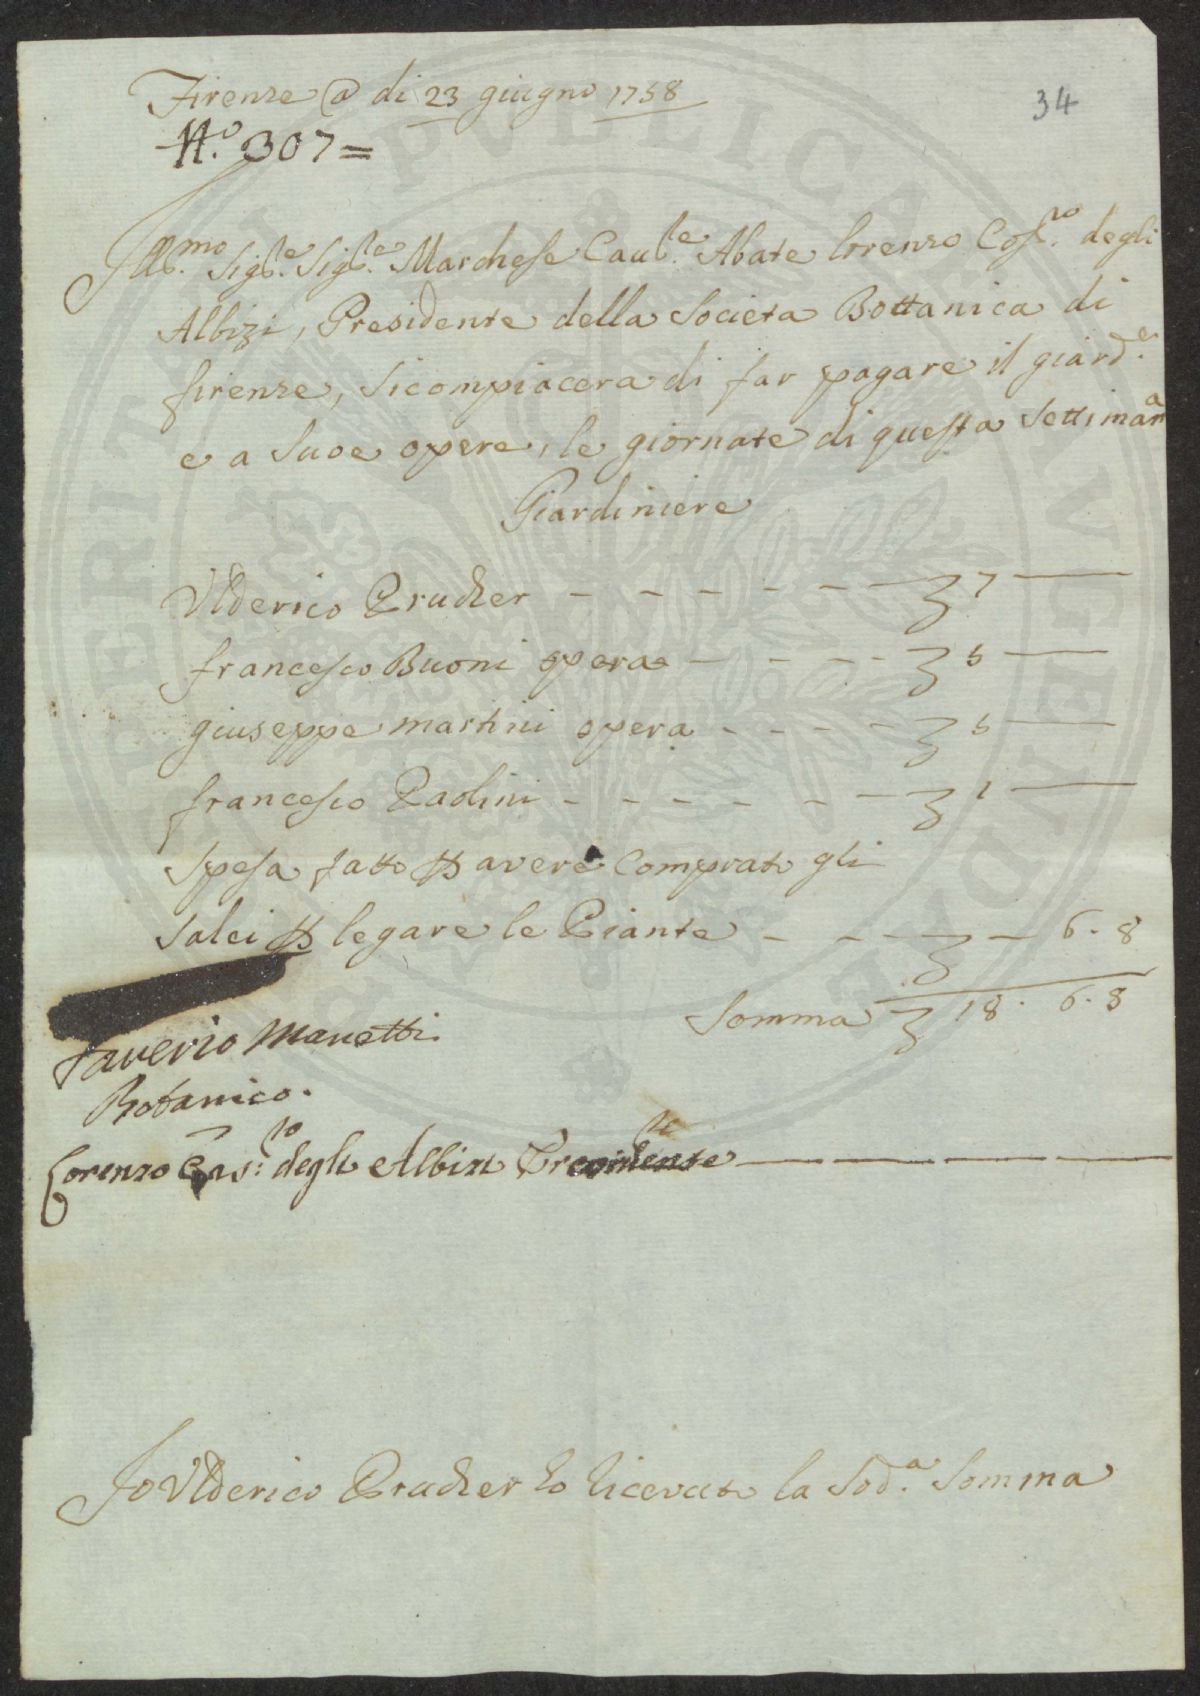 Firenze @ di 23 giugno 1758
34
N.º 307=
Ill.mo Sig.re Sig.re Marchese Cau.re Abate lorenzo Cos.to degli
Albizi, Presidente della Societa Bottanica di
firenze, Sicompiacera di far pagare il giard.e
e a Suoe opere, le giornate di questa Settimana
Giardiniere
Ulderico Prucher - - - - - 7
francesco Buoni opera - - - - 5
giuseppe martini opera - - - - 5
francesco Paolini - - - - - - 1
Spesa fatto p avere Comprato gli
Salci p legare le Piante - - - - 6.8
Somma 18. 6.8
Saverio Manetti
Botanico.
Lorenzo Cos:to degli Albizi Presidente
Io Ulderico Prucher ho Riceuuto la Sod.a Somma